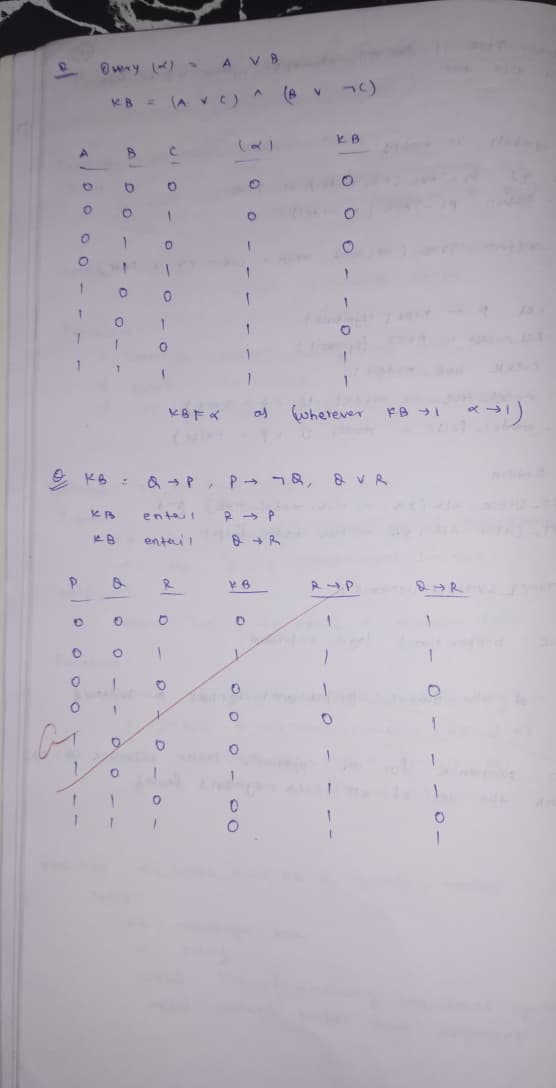 Q Query (α) = A V B
KB = (A v C) ^ (B v ¬C)
A B C (α) KB
0 0 0 0 0
0 0 1 0 0
0 1 0 1 0
0 1 1 1 1
1 0 0 1 1
1 0 1 1 0
1 1 0 1 1
1 1 1 1 1
KB ⊧ α as (wherever KB → 1 α → 1)
Q KB = Q → P, P → ¬Q, Q V R
KB entail R → P
KB entail Q → R
P Q R KB R → P Q → R
0 0 0 0 1 1
0 0 1 1 1 1
0 1 0 0 1 0
0 1 1 0 0 1
1 0 0 0 1 1
1 0 1 1 1 1
1 1 0 0 1 0
1 1 1 0 1 1